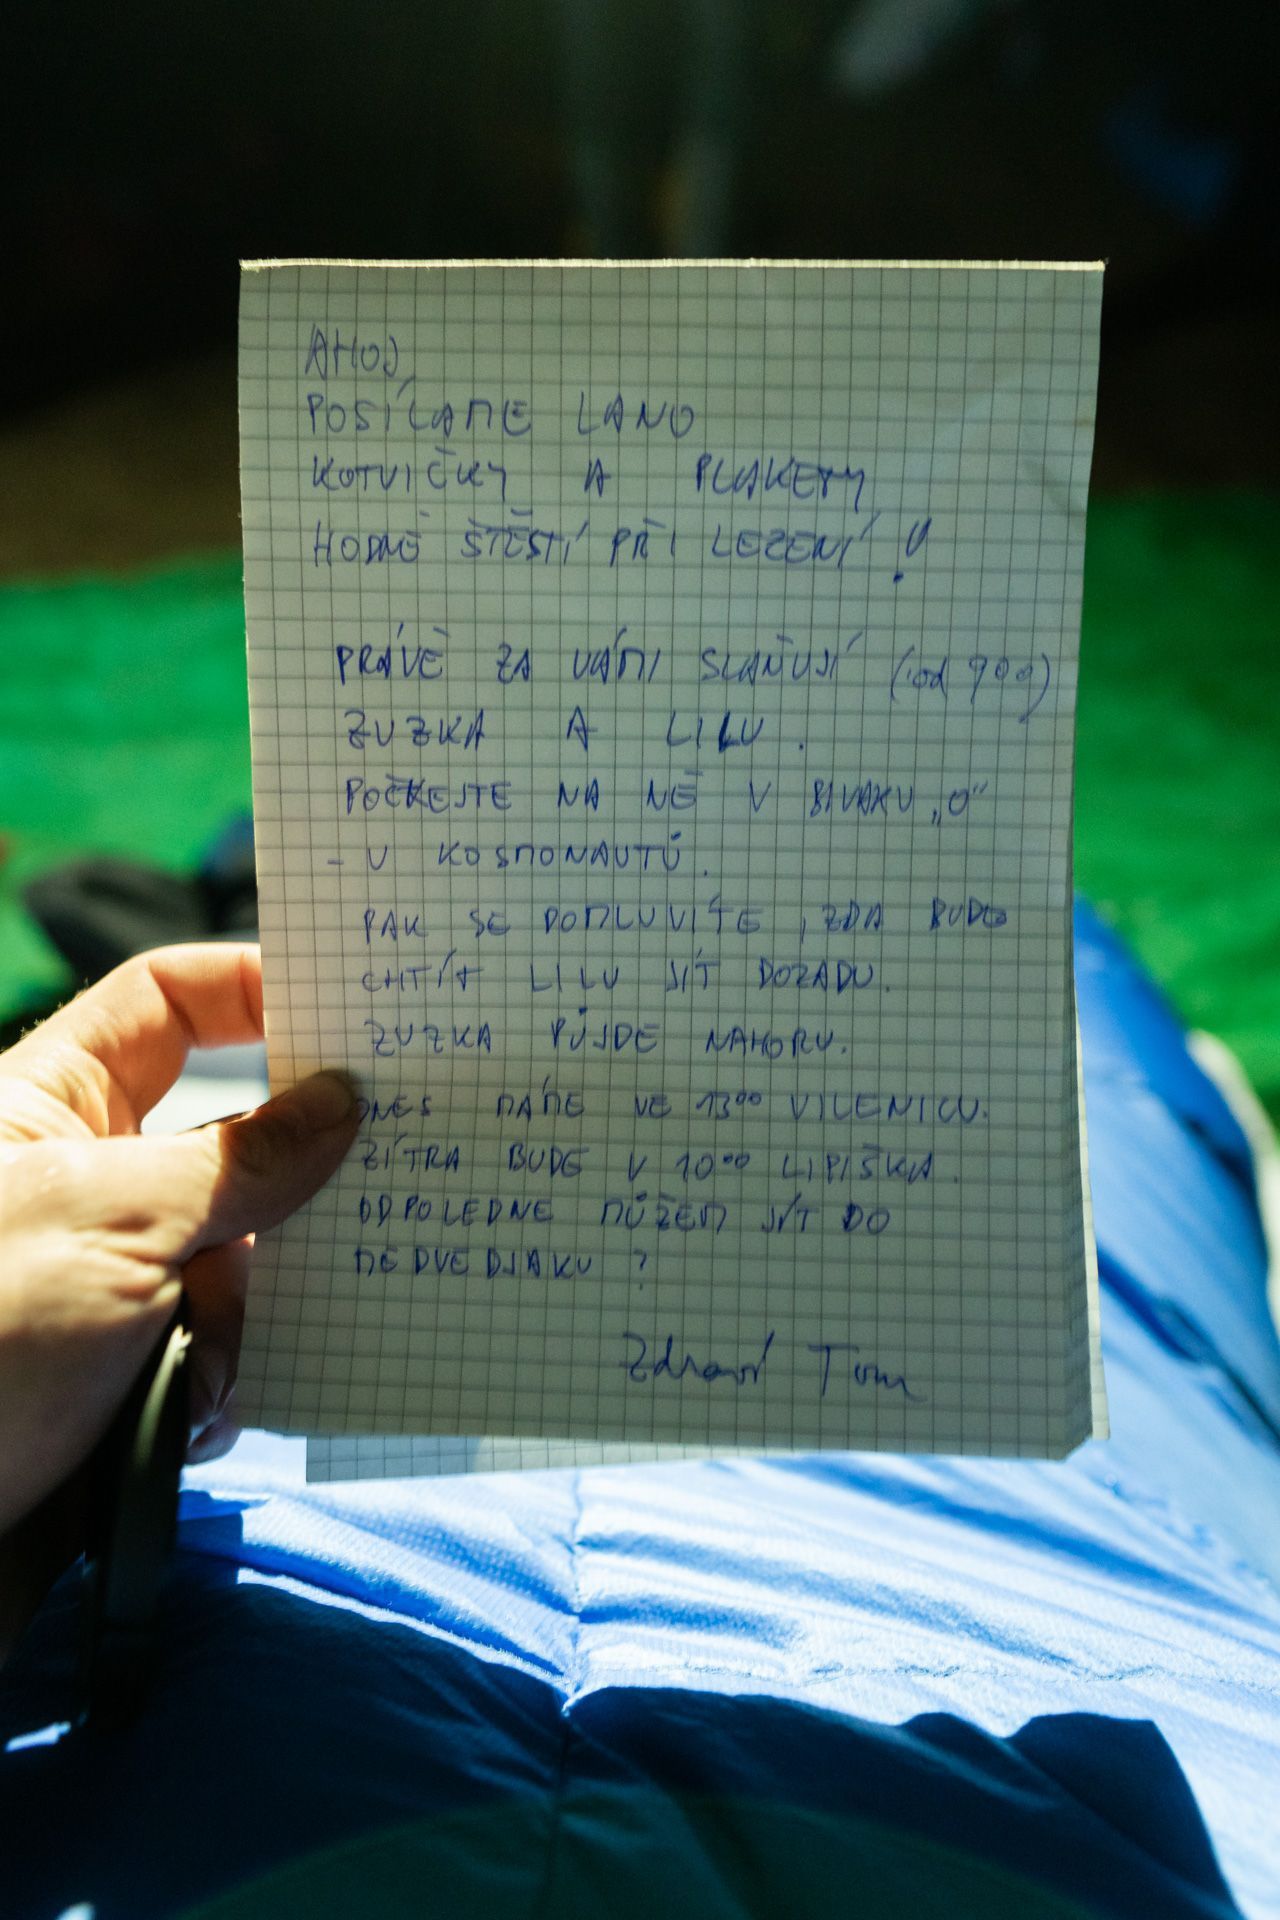 AHOJ,
POSÍLAME LANO
KOTVIČKY A PLAKETY
HODNĚ ŠTĚSTÍ PŘI LEZENÍ !
PRÁVĚ ZA VÁMI SLAŇUJÍ (od 9⁰⁰)
ZUZKA A LILU .
POČKEJTE NA NĚ V BIVAKU „O“
- U KOSMONAUTŮ.
PAK SE DOMLUVÍTE , ZDA BUDE
CHTÍT LILU JÍT DOZADU.
ZUZKA PŮJDE NAHORU.
DNES MÁME VE 13⁰⁰ VILENICU.
ZÍTRA BUDE V 10⁰⁰ LIPIŠKA.
ODPOLEDNE MŮŽEM JÍT DO
MEDVEDJAKU ?
Zdraví Tom